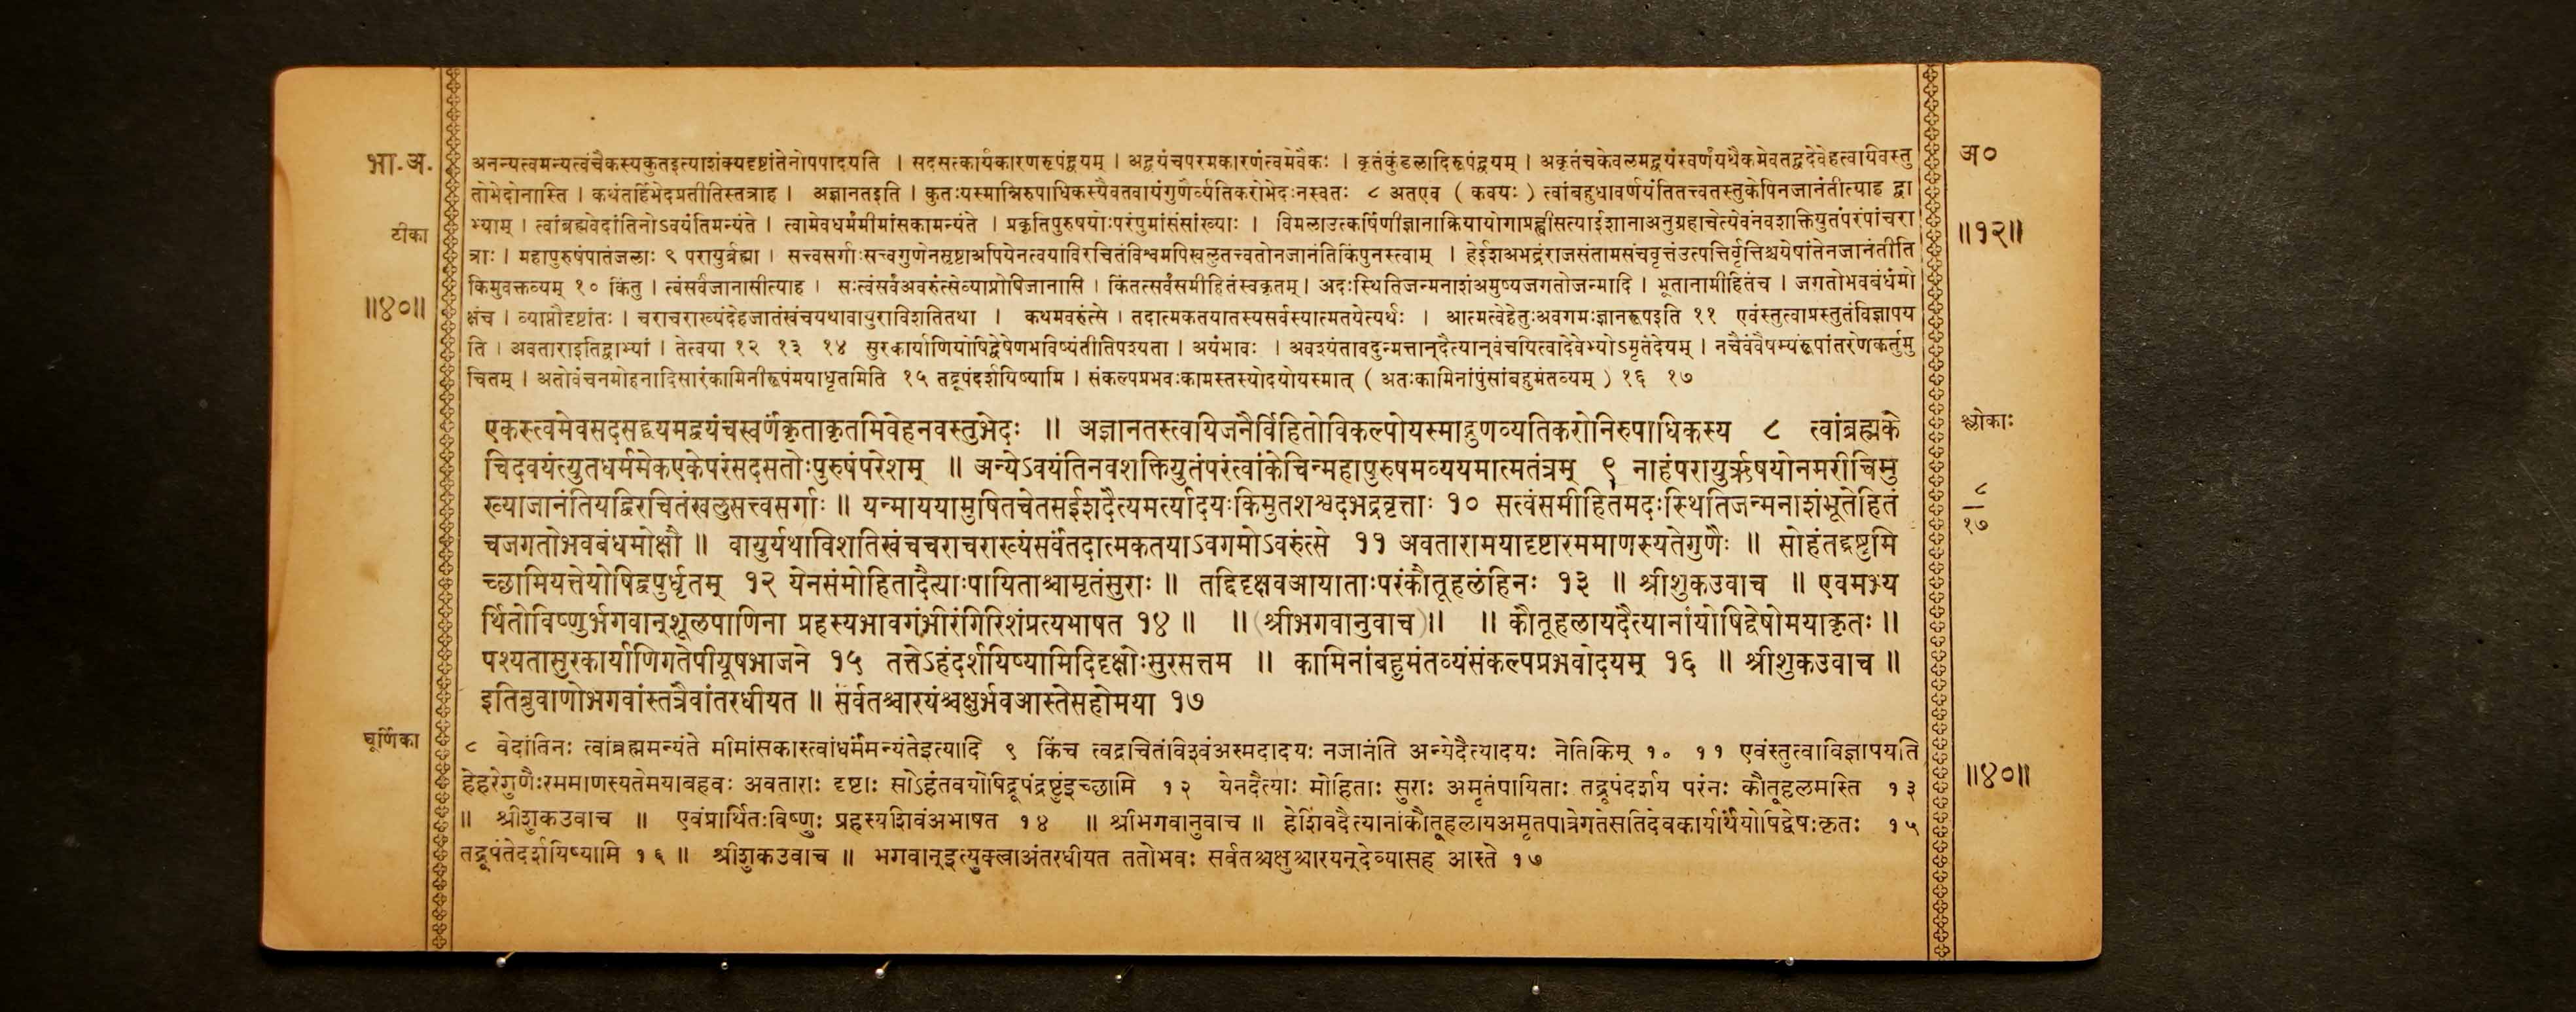 भा.अ.
टीका
॥४०॥
चूर्णिका
अनन्यत्वमन्यत्वंचैकस्यकुतइत्याशंक्यदृष्टांतेनोपपादयति । सदसत्कार्यकारणरूपंद्वयम् । अद्वयंचपरमकारणंत्वमेवैकः । कृतंकुंडलादिरूपंद्वयम् । अकृतंचकेवलमद्वयंस्वर्णंयथैकमेवतद्वदेवेहत्वयिवस्तु
तोभेदोनास्ति । कथंतर्हिभेदप्रतीतिस्तत्राह । अज्ञानतइति । कुतःयस्मान्निरुपाधिकस्यैवतवायंगुणैर्व्यतिकरोभेदःनस्वतः ८ अतएव ( कवयः ) त्वांबहुधावर्णयंतितत्त्वतस्तुकेपिनजानंतीत्याह द्वा
भ्याम् । त्वांब्रह्मवेदांतिनोऽवयंतिमन्यंते । त्वामेवधर्मंमीमांसकामन्यंते । प्रकृतिपुरुषयोःपरंपुमांसंसांख्याः । विमलाउत्कर्षिणीज्ञानाक्रियायोगाप्रह्वीसत्याईशानाअनुग्रहाचेत्येवंनवशक्तियुतंपरंपांचरा
त्राः । महापुरुषंपातंजलाः ९ परायुर्ब्रह्मा । सत्त्वसर्गाःसत्त्वगुणेनसृष्टाअपियेनत्वयाविरचितंविश्वमपिखलुतत्त्वतोनजानंतिकिंपुनस्त्वाम् । हेईशअभद्रंराजसंतामसंचवृत्तंउत्पत्तिर्वृत्तिश्चयेषांतेनजानंतीति
किमुवक्तव्यम् १० किंतु । त्वंसर्वंजानासीत्याह । सःत्वंसर्वंअवरुंत्सेव्याप्नोषिजानासि । किंतत्सर्वंसमीहितंस्वकृतम् । अदःस्थितिजन्मनाशंअमुष्यजगतोजन्मादि । भूतानामीहितंच । जगतोभवबंधंमो
क्षंच । व्याप्तौदृष्टांतः । चराचराख्यंदेहजातंखंचयथावायुराविशतितथा । कथमवरुंत्से । तदात्मकतयातस्यसर्वस्यात्मतयेत्यर्थः । आत्मत्वेहेतुःअवगमःज्ञानरूपइति ११ एवंस्तुत्वाप्रस्तुतंविज्ञापय
ति । अवताराइतिद्वाभ्यां । तेत्वया १२ १३ १४ सुरकार्याणियोषिद्वेषेणभविष्यंतीतिपश्यता । अयंभावः । अवश्यंतावदुन्मत्तान्दैत्यान्वंचयित्वादेवेभ्योऽमृतंदेयम् । नचैवंवैषम्यंरूपांतरेणकर्तुमु
चितम् । अतोवंचनमोहनादिसारंकामिनीरूपंमयाधृतमिति १५ तद्रूपंदर्शयिष्यामि । संकल्पप्रभवःकामस्तस्योदयोयस्मात् ( अतःकामिनांपुंसांबहुमंतव्यम् ) १६ १७
एकस्त्वमेवसदसद्वयमद्वयंचस्वर्णंकृताकृतमिवेहनवस्तुभेदः ॥ अज्ञानतस्त्वयिजनैर्विहितोविकल्पोयस्माद्गुणव्यतिकरोनिरुपाधिकस्य ८ त्वांब्रह्मके
चिदवयंत्युतधर्ममेकएकेपरंसदसतोःपुरुषंपरेशम् ॥ अन्येऽवयंतिनवशक्तियुतंपरंत्वांकेचिन्महापुरुषमव्ययमात्मतंत्रम् ९ नाहंपरायुर्ऋषयोनमरीचिमु
ख्याजानंतियद्विरचितंखलुसत्त्वसर्गाः ॥ यन्माययामुषितचेतसईशदैत्यमर्त्यादयःकिमुतशश्वदभद्रवृत्ताः १० सत्वंसमीहितमदःस्थितिजन्मनाशंभूतेहितं
चजगतोभवबंधमोक्षौ ॥ वायुर्यथाविशतिखंचचराचराख्यंसर्वंतदात्मकतयाऽवगमोऽवरुंत्से ११ अवतारामयादृष्टारममाणस्यतेगुणैः ॥ सोहंतद्द्रष्टुमि
च्छामियत्तेयोषिद्वपुर्धृतम् १२ येनसंमोहितादैत्याःपायिताश्चामृतंसुराः ॥ तद्दिदृक्षवआयाताःपरंकौतूहलंहिनः १३ ॥ श्रीशुकउवाच ॥ एवमभ्य
र्थितोविष्णुर्भगवान्शूलपाणिना प्रहस्यभावगंभीरंगिरिशंप्रत्यभाषत १४ ॥ ॥ (श्रीभगवानुवाच)॥ ॥ कौतूहलायदैत्यानांयोषिद्वेषोमयाकृतः ॥
पश्यतासुरकार्याणिगतेपीयूषभाजने १५ तत्तेऽहंदर्शयिष्यामिदिदृक्षोःसुरसत्तम ॥ कामिनांबहुमंतव्यंसंकल्पप्रभवोदयम् १६ ॥ श्रीशुकउवाच ॥
इतिब्रुवाणोभगवांस्तत्रैवांतरधीयत ॥ सर्वतश्चारयंश्चक्षुर्भवआस्तेसहोमया १७
८ वेदांतिनः त्वांब्रह्ममन्यंते मीमांसकास्त्वांधर्मंमन्यंतेइत्यादि ९ किंच त्वद्रचितंविश्वंअस्मदादयः नजानंति अन्येदैत्यादयः नेतिकिमु १० ११ एवंस्तुत्वाविज्ञापयति
हेहरेगुणैःरममाणस्यतेमयाबहवः अवताराः दृष्टाः सोऽहंतवयोषिद्रूपंद्रष्टुंइच्छामि १२ येनदैत्याः मोहिताः सुराः अमृतंपायिताः तद्रूपंदर्शय परंनः कौतूहलमस्ति १३
॥ श्रीशुकउवाच ॥ एवंप्रार्थितःविष्णुः प्रहस्यशिवंअभाषत १४ ॥ श्रीभगवानुवाच ॥ हेशिवदैत्यानांकौतूहलायअमृतपात्रेगतेसतिदेवकार्यार्थंयोषिद्वेषःकृतः १५
तद्रूपंतेदर्शयिष्यामि १६ ॥ श्रीशुकउवाच ॥ भगवान्इत्युक्त्वाअंतरधीयत ततोभवः सर्वतश्चक्षुश्चारयन्देव्यासह आस्ते १७
अ०
॥१२॥
श्लोकाः
८
१७
॥४०॥